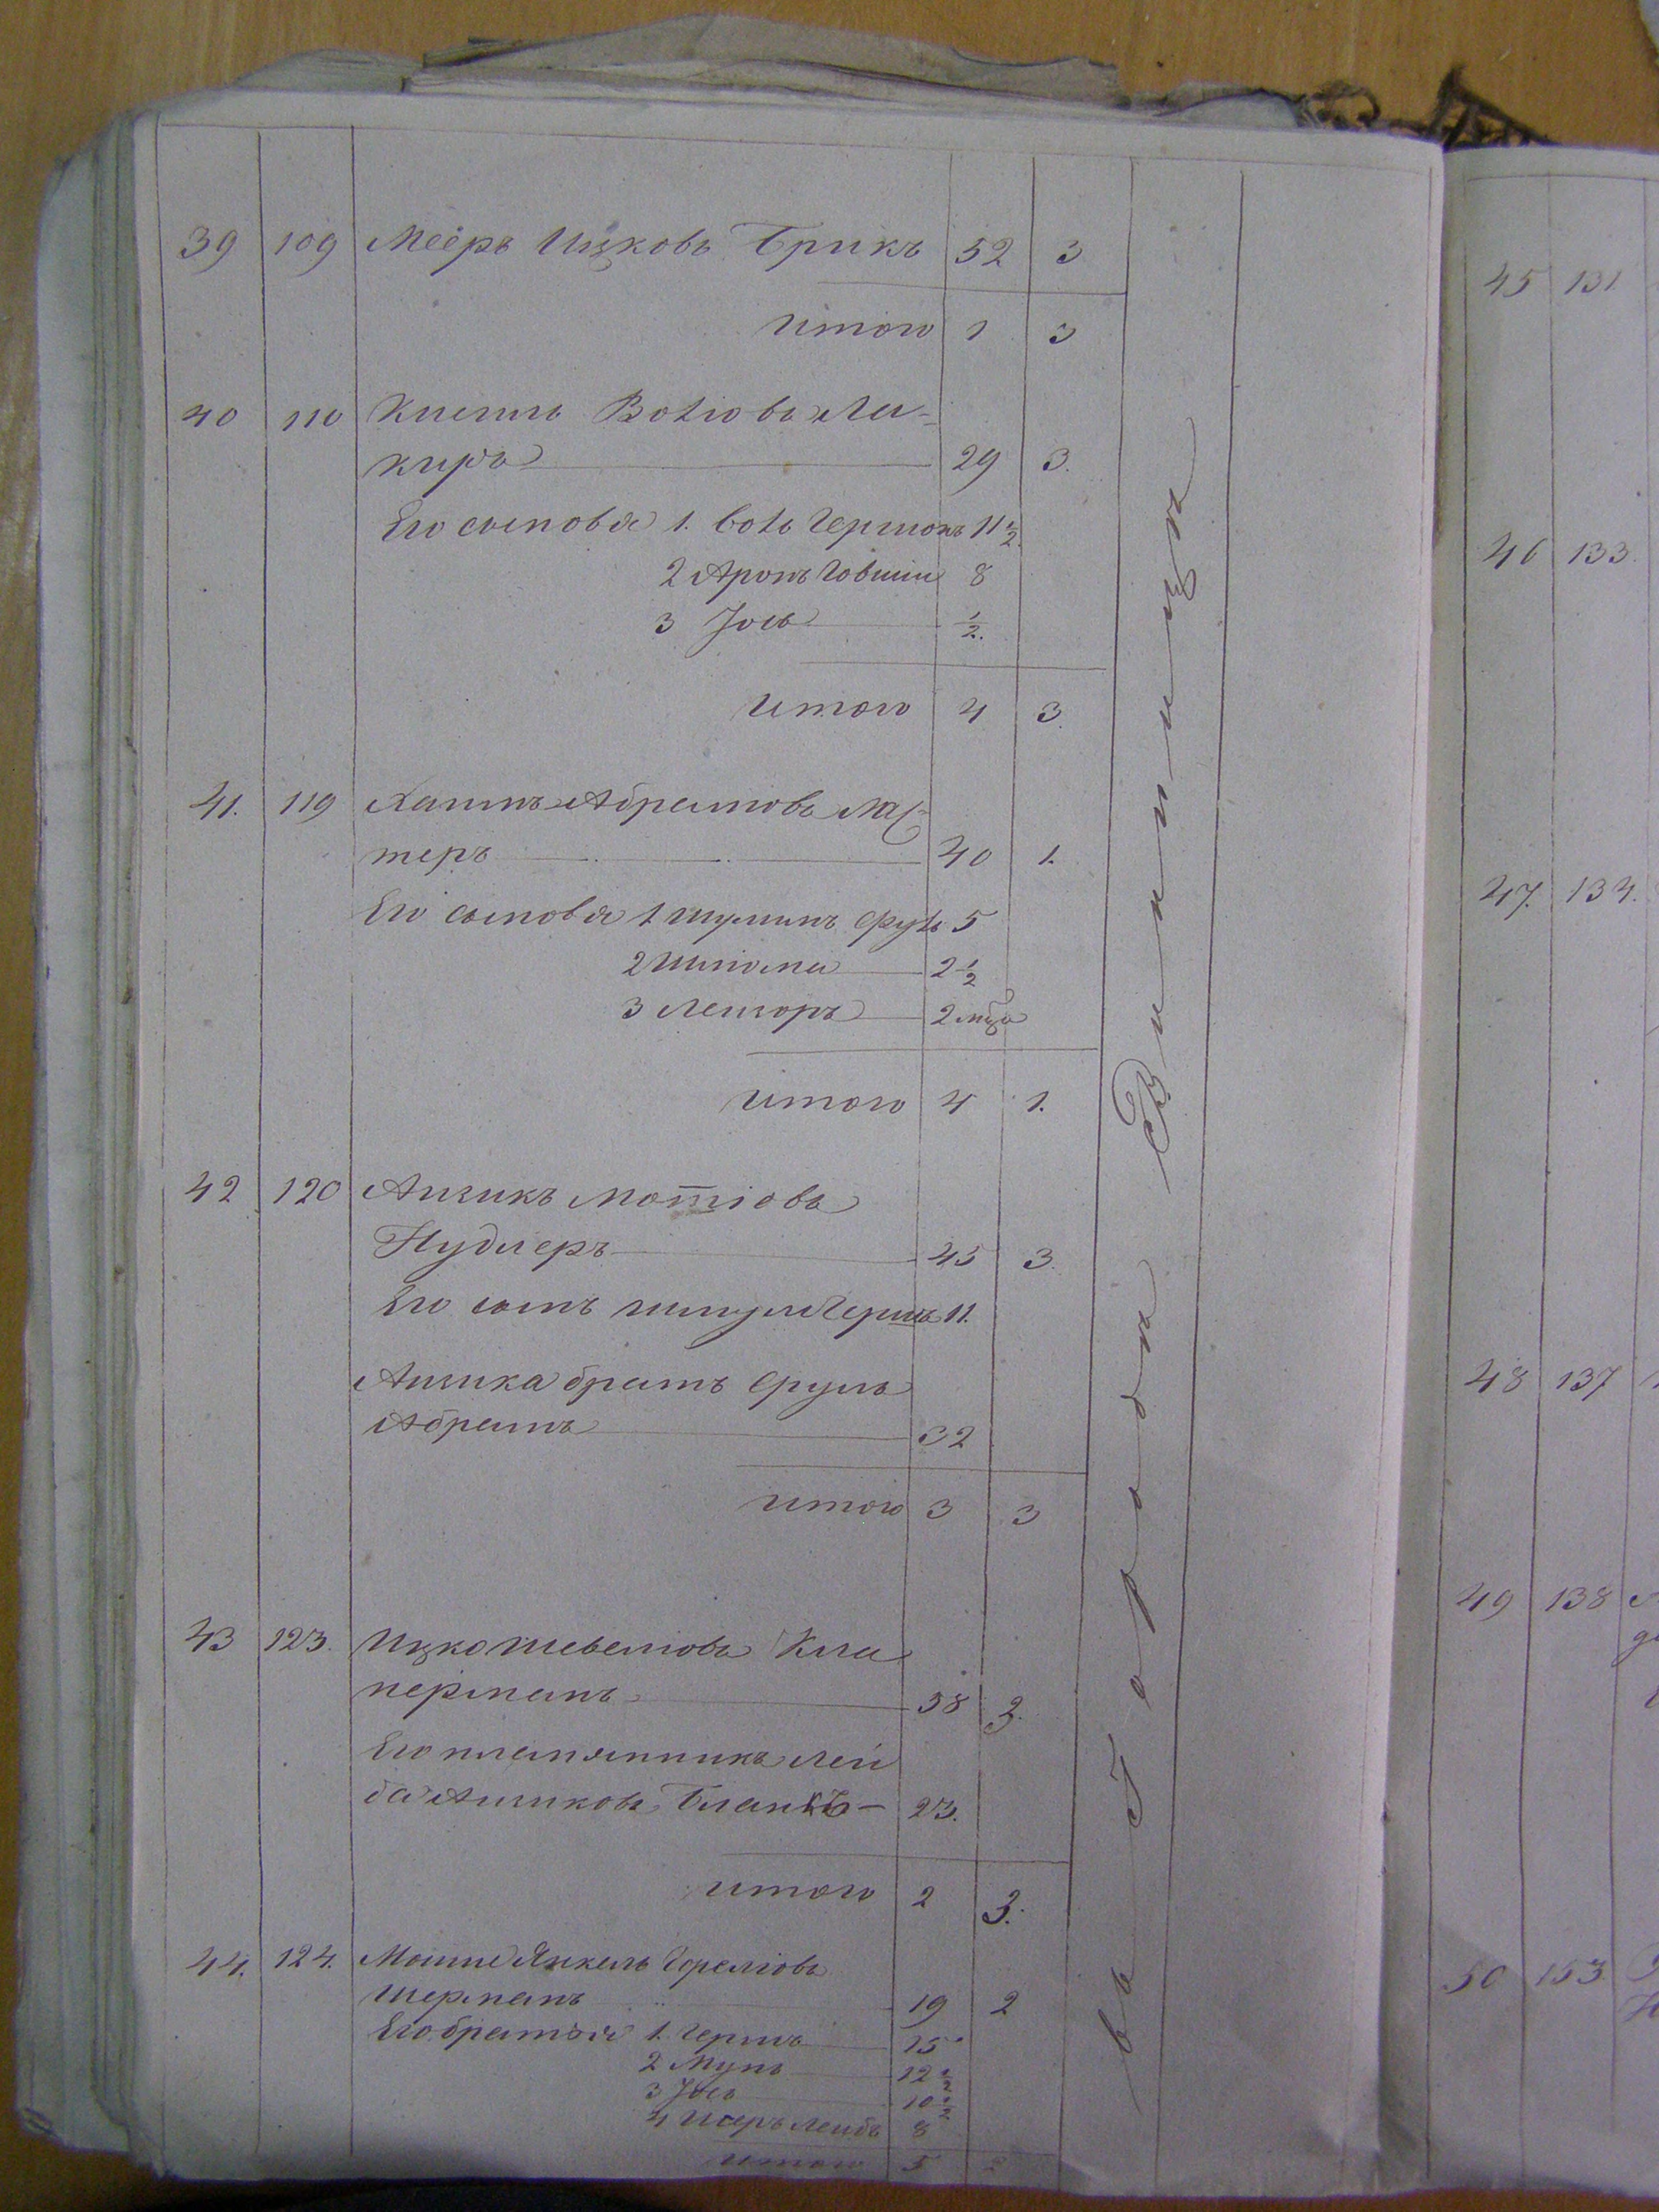 39 109 Мееръ Ицковъ Брикъ 52 3
итого 1 3
40 110 Волховъ
29 3.
Его сыновья 1. Гершонъ 11 1/2.
2 Аронъ Говшия 8
3 Іось 1/2.
итого 4 3.
41. 119 Хаимъ Абрамовъ Ма-
теръ 40 1.
Его сыновья 1 5
2 Шлома 2 1/2
3 Лейзоръ 2 мца
итого 4 1.
42 120 Айзикъ Мотіовъ
Нудлеръ 45 3.
Его сынъ Гершъ 11.
Айзика братъ Сруль
Абрамъ 32
итого 3 3
43 123. Ицко Шевеліовъ Кла
перманъ 58 3.
Его племянникъ Лей
ба Айзиковъ Бланкъ - 23.
итого 2 3.
44. 124. Мошие Янкель
Шерманъ 19 2
Его братья 1. Гершъ 15
2 12 1/2
3 Іось 10 1/2
4 Лейбъ 8
итого 5 2
въ Городѣ Винницѣ
45 131
46 133.
47. 134.
48 137
49 138
50 153